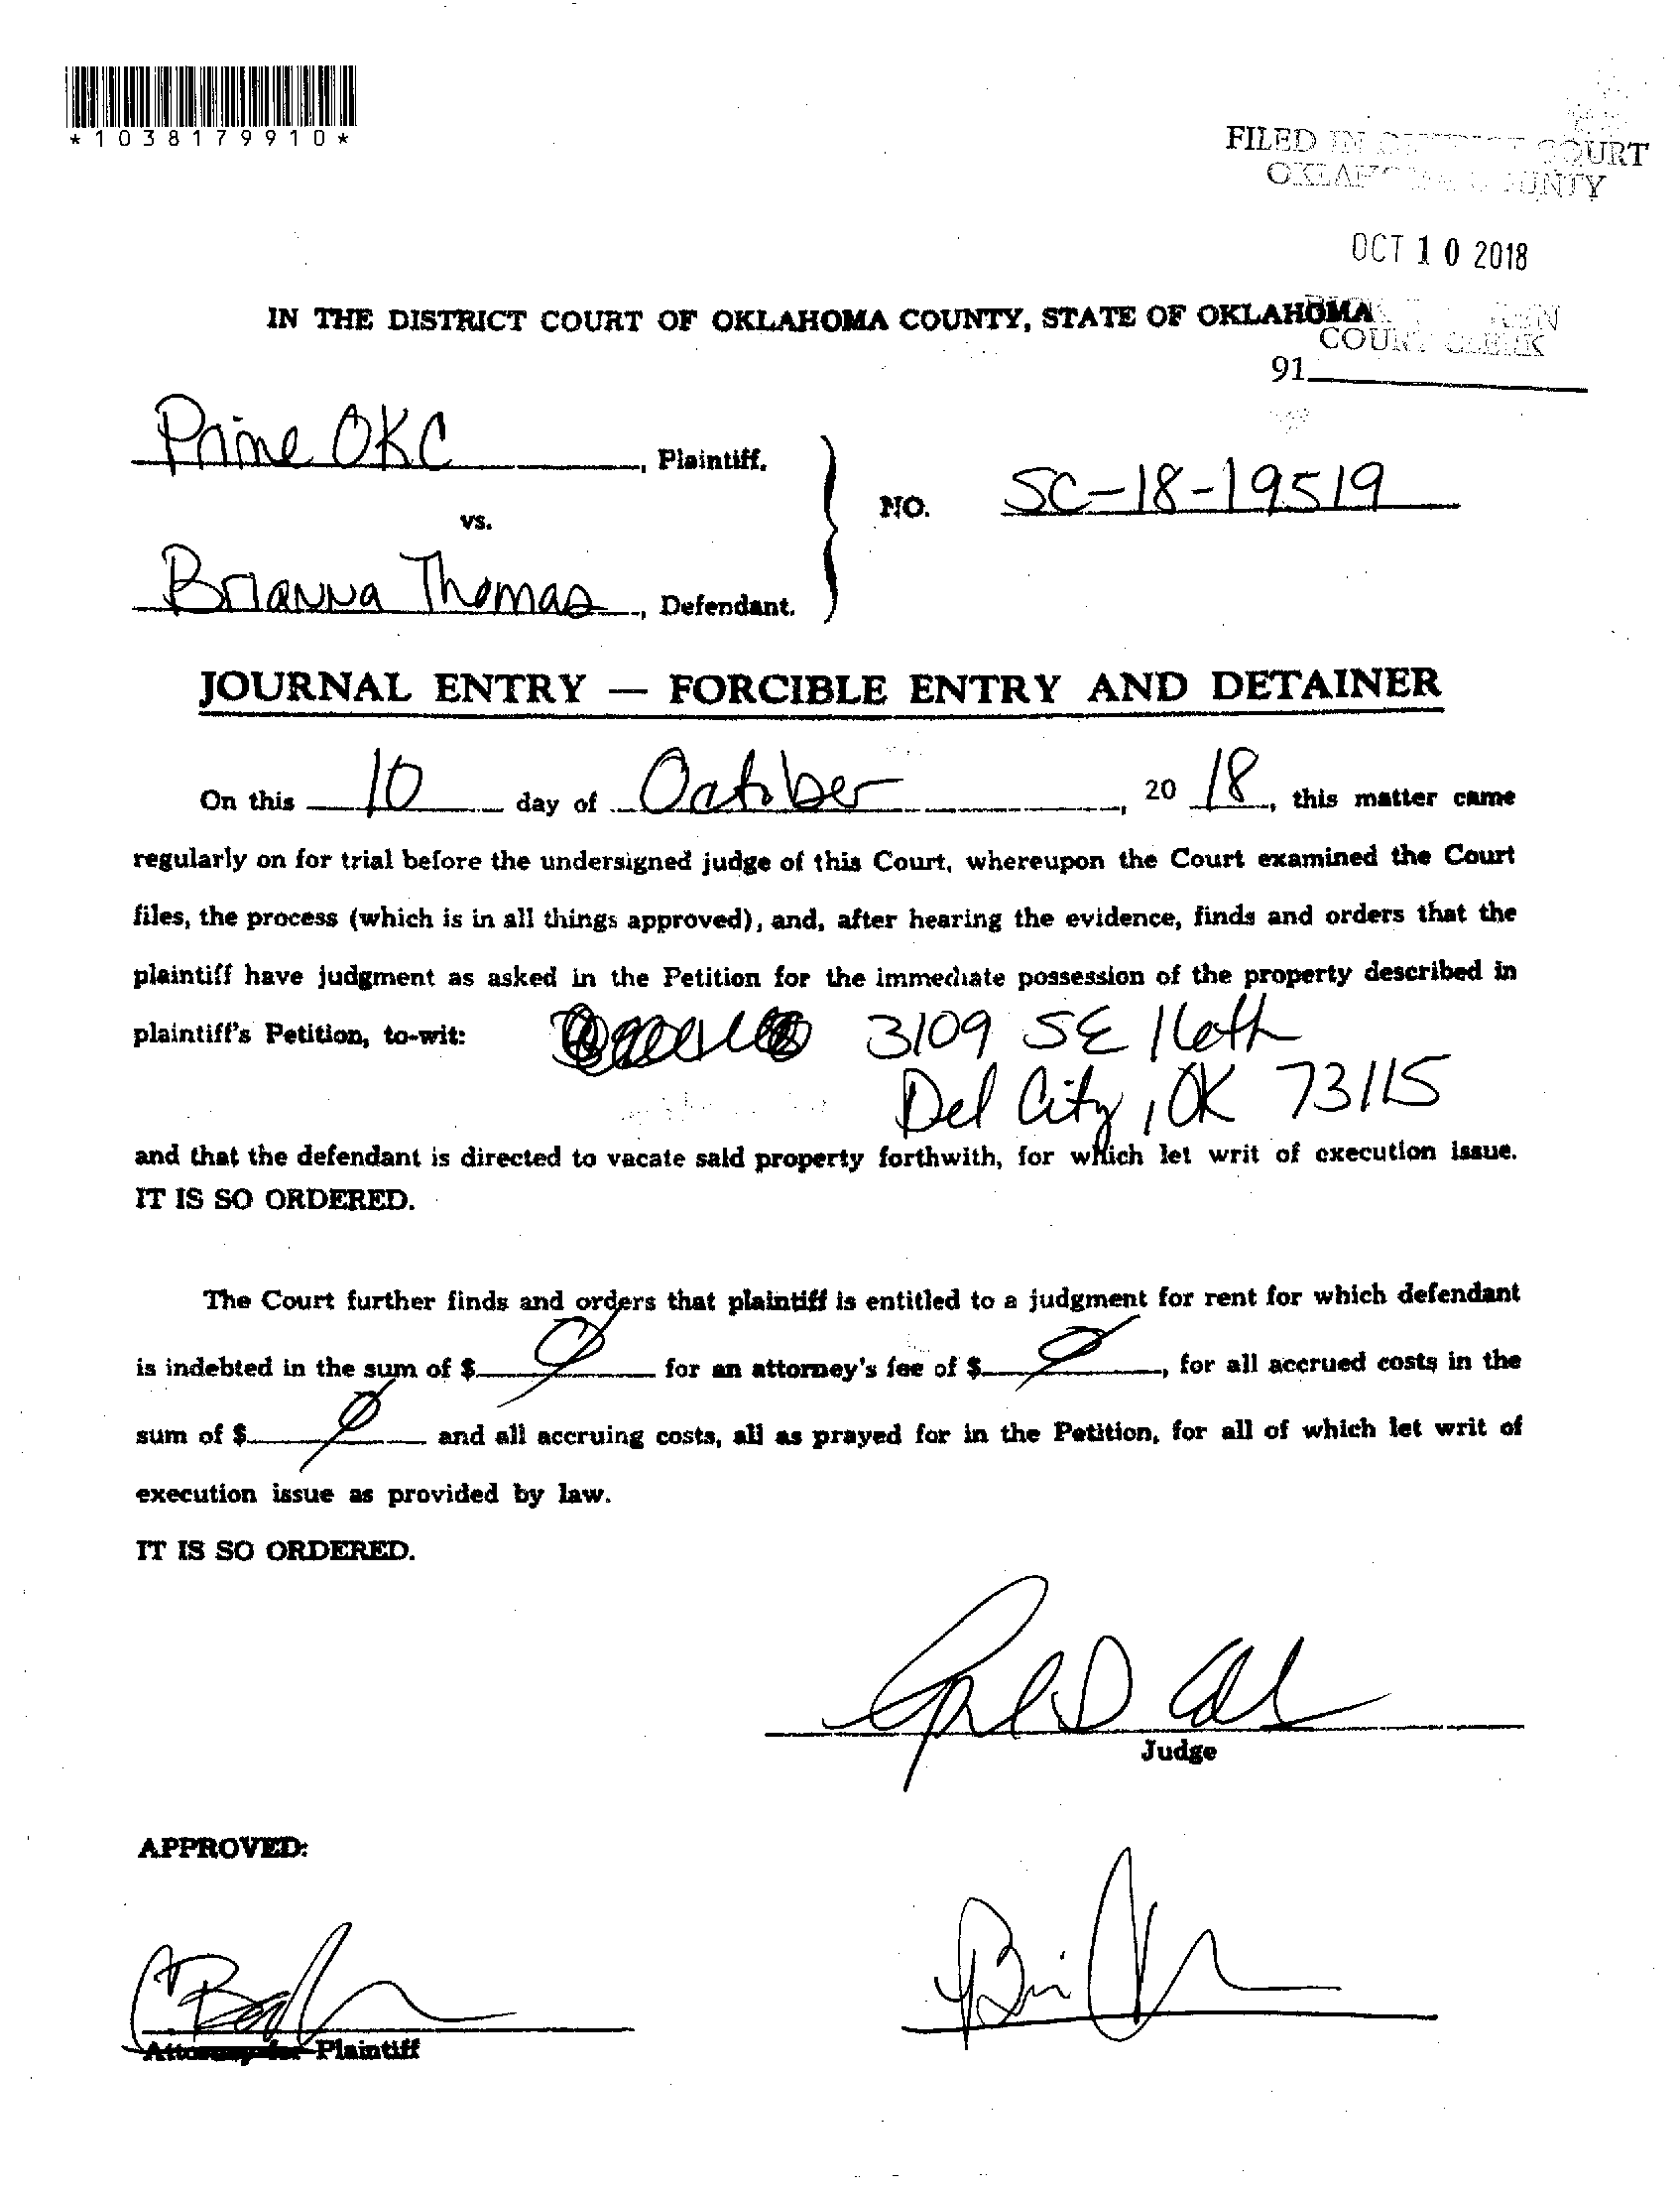 *1038179910*
FILED IN DISTRICT COURT
OKLAHOMA COUNTY
OCT 10 2018
IN THE DISTRICT COURT OF OKLAHOMA COUNTY, STATE OF OKLAHOMA
COURT CLERK
91
Prime OKC, Plaintiff,
vs.
NO. SC-18-19519
Brianna Thomas, Defendant.
JOURNAL ENTRY — FORCIBLE ENTRY AND DETAINER
On this 10 day of October, 20 18, this matter came
regularly on for trial before the undersigned judge of this Court, whereupon the Court examined the Court
files, the process (which is in all things approved), and, after hearing the evidence, finds and orders that the
plaintiff have judgment as asked in the Petition for the immediate possession of the property described in
plaintiff's Petition, to-wit: 3109 SE 16th
Del City, OK 73115
and that the defendant is directed to vacate said property forthwith, for which let writ of execution issue.
IT IS SO ORDERED.
The Court further finds and orders that plaintiff is entitled to a judgment for rent for which defendant
is indebted in the sum of $ Ø for an attorney's fee of $ Ø, for all accrued costs in the
sum of $ Ø and all accruing costs, all as prayed for in the Petition, for all of which let writ of
execution issue as provided by law.
IT IS SO ORDERED.
Judge
APPROVED:
Attorney for Plaintiff